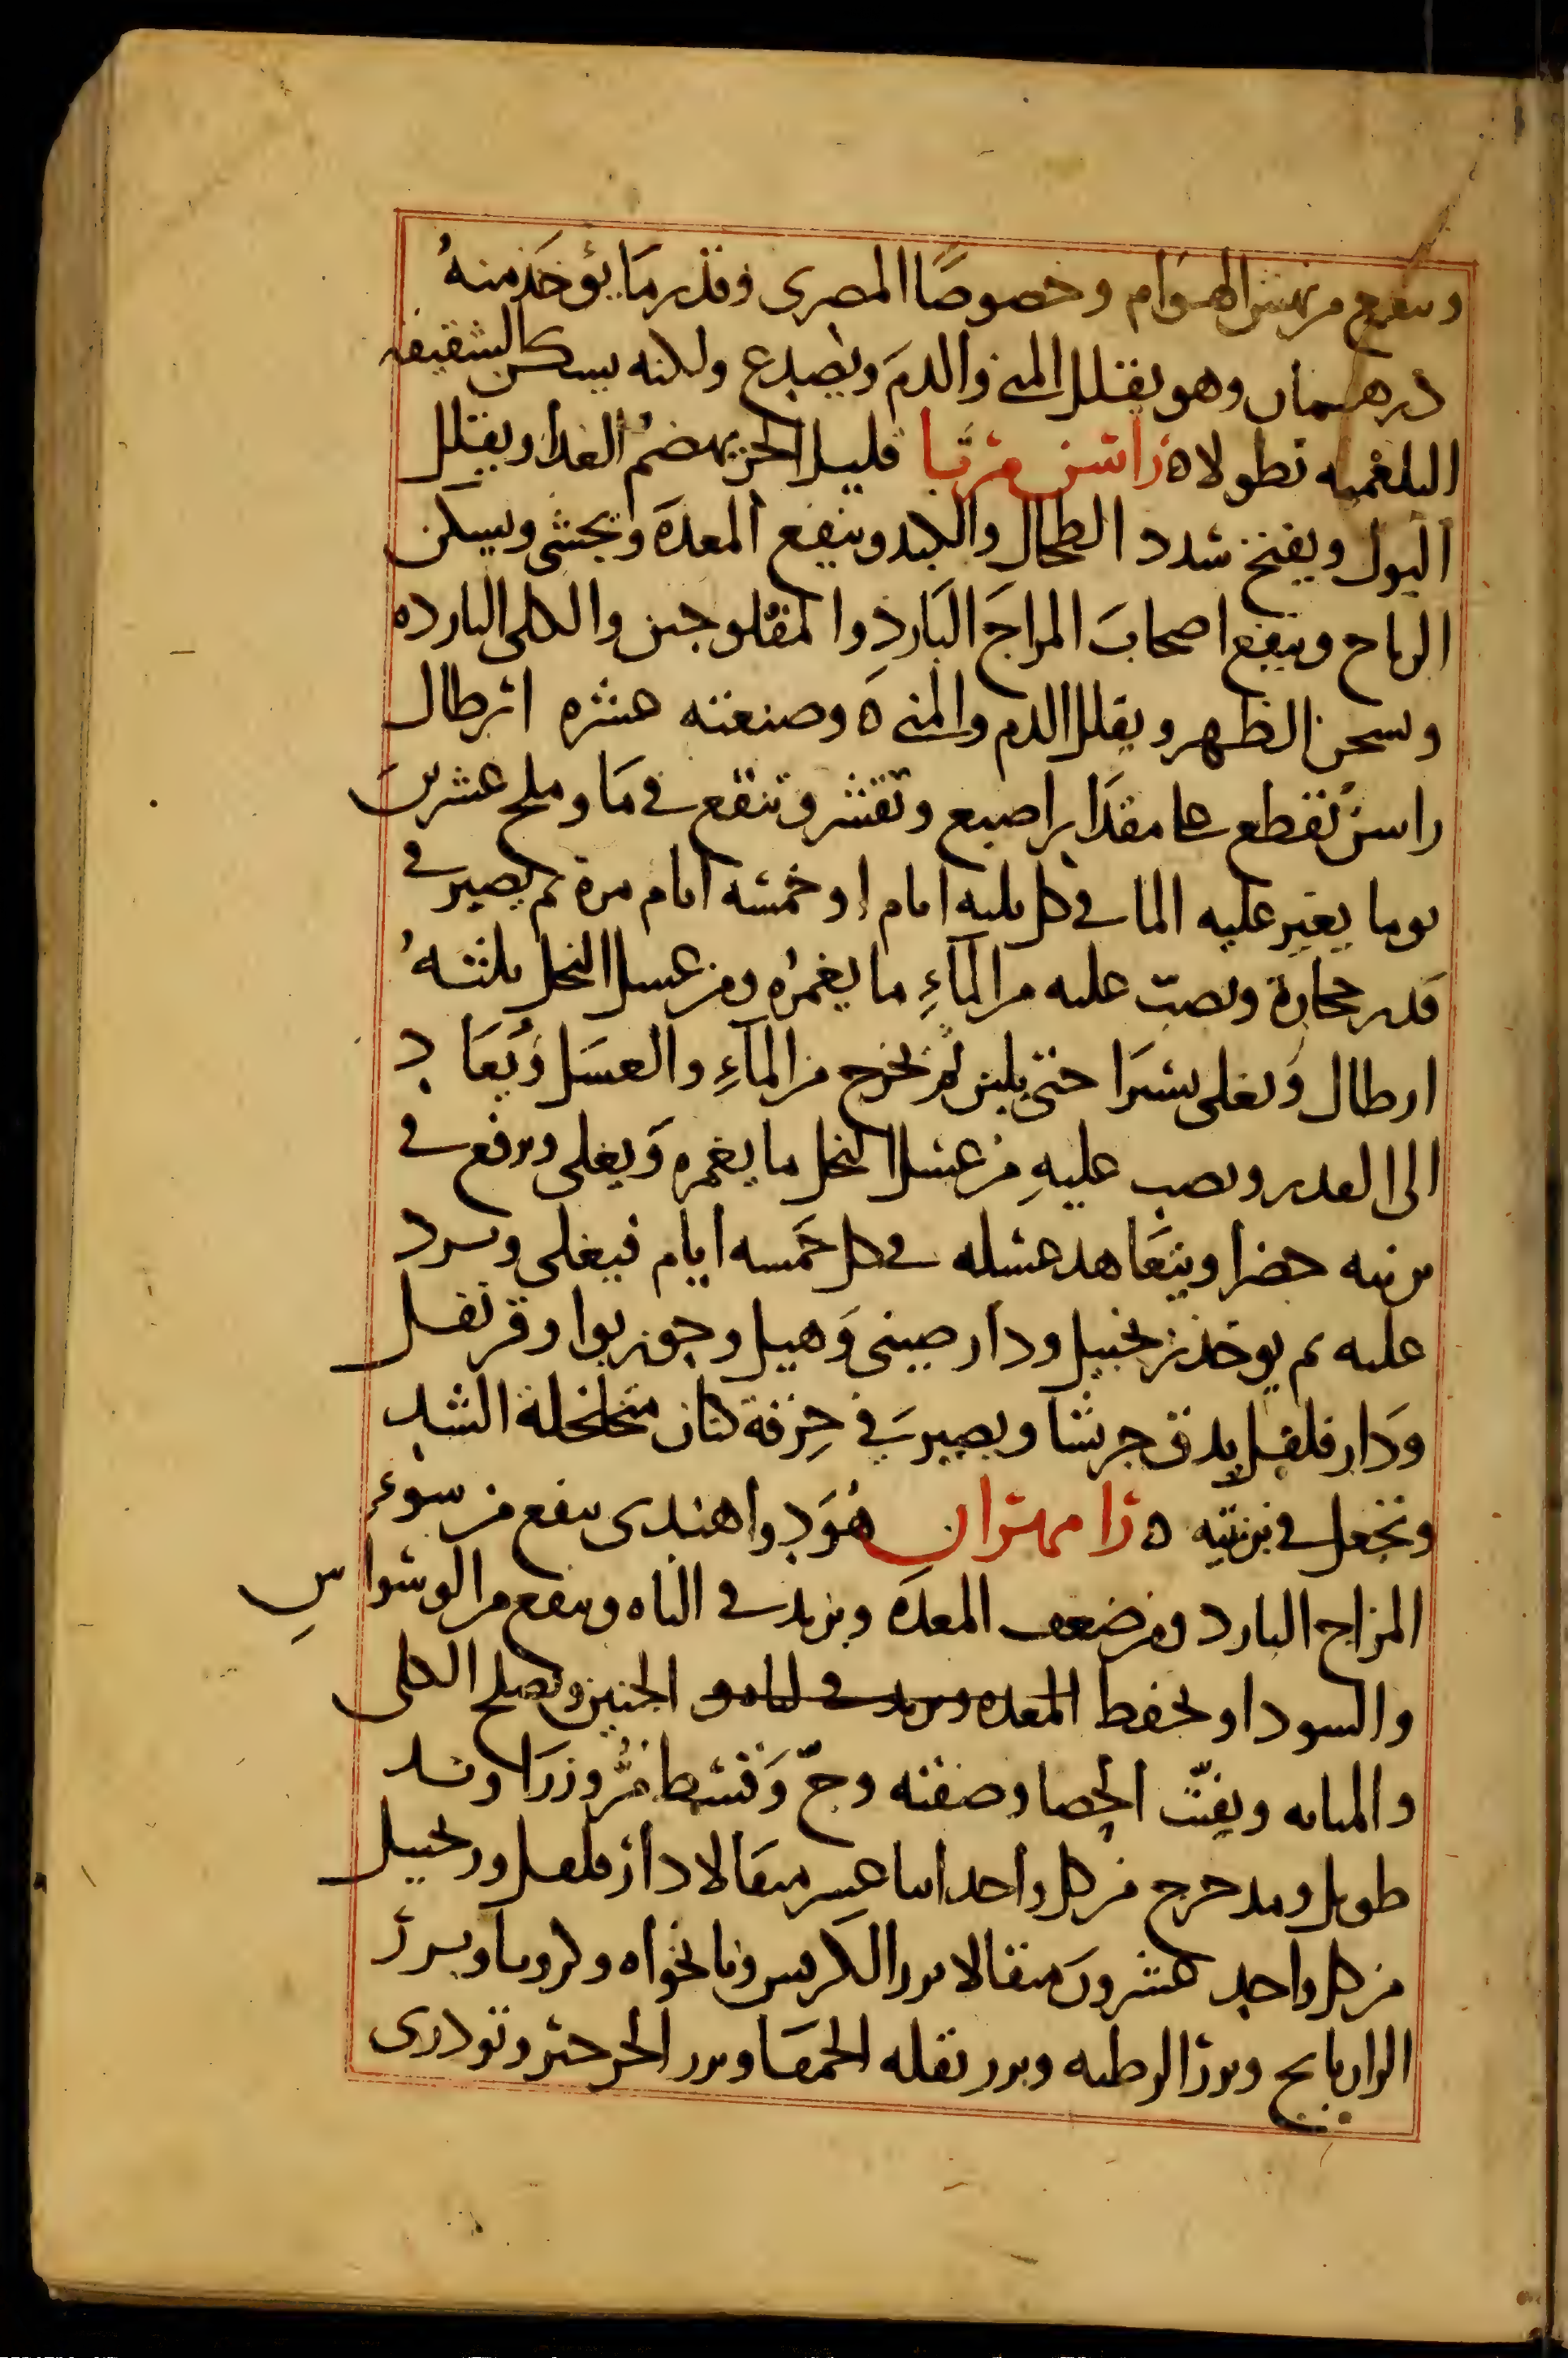 وينفع من نهش الهوام وخصوصًا المصرى وقدر ما يؤخذ منهُ
درهمان وهو يقلل المنى والدمَ ويصدع ولكنه يسكن الشقيقه
البلغميه نطولا ه راسن مربا قليل الحر يهضمُ الغدا ويقلل
البول ويفتح سدد الطحال والكبد وينفع المعدهَ ويجشى ويسكن
الرياح وينفع اصحابَ المزاجَ البَاردِ والمفلوجين والكلى البارده
ويسخن الظهر ويقلل الدم والمنى ه وصنعته عشره ارطال
راسن تقطع على مقدَار اصبع وتقشر وتنقع فى مَا وملح عشرين
يوما يغير عليه الما فى كل ثلثه ايام او خمسه ايام مرة ثم يصير فى
قدر حجارة ويصبّ عليه من المآءِ ما يغمرُه ومن عسل النحل ثلثهُ
ارطال وَيغلى يسيرَا حتى يلين ثم يخرج من المآءِ والعسَل وَيُعَا د
الى القدر ويصب عليهِ من عسل النحل ما يغمره وَيغلى ويرفع فى
برنيه خضرا ويتعَاهد عسله فى كل خَمسه ايام فيغلى ويرد
عليه ثم يوخذ زنجبيل ودار صينى وَهيل وجوزبوا وقرنفل
وَدار فلفل يدق جريشا ويصير فى خِرقة كتان متخلخلة الشد
وتجعل فى برنيته ه زامهران هُوَ دِوا هندى ينفع من سوءِ
المزاج البارد ومن ضعف المعدَه ويزيد فى الباه وينفع من الوسواسِ
والسودا ويحفظ المعده ويزيد فى الباه و الجنين ويصلح الكلى
والمثانه ويفتّ الحصا وصفته وجّ وَقسط مُرّ وزرَاوند
طويل ومدحرج من كل واحد اثنا عشر مثقالا دار فلفل وزنجبيل
من كل واحد عشرون مثقالا بزر الكرفس ونانخواه وكرويا وبرز
الرازيانج وبزر الرطبه وبزر بقله الحمقَا وبزر الجرجير وتودرى